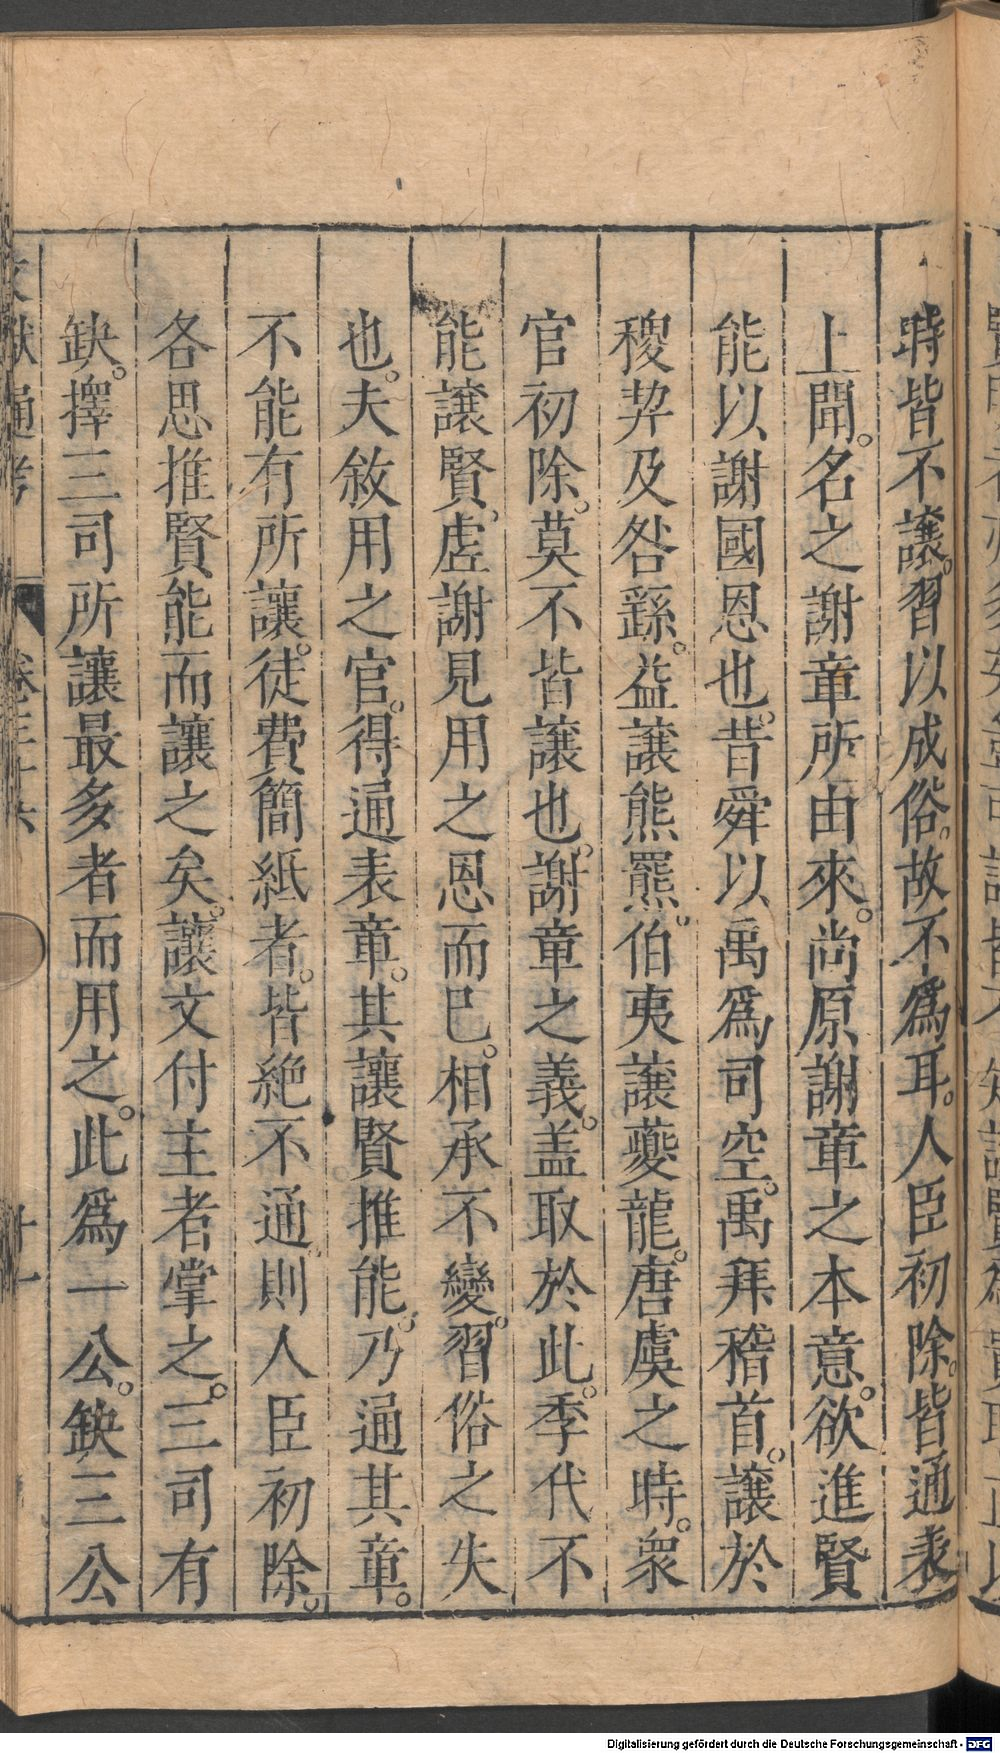 時皆不讓。習以成俗。故不爲耳。人臣初除。皆通表
上聞。名之謝章所由來。尚原謝章之本意。欲進賢
能以謝國恩也。昔舜以禹爲司空。禹拜稽首。讓於
稷契及咎繇。益讓熊羆。伯夷讓夔龍。唐虞之時。衆
官初除。莫不皆讓也。謝章之義。盖取於此。季代不
能讓賢。虛謝見用之恩而巳。相承不變。習俗之失
也。夫敘用之官。得通表章。其讓賢推能。乃通其章。
不能有所讓。徒費簡紙者。皆絶不通。則人臣初除。
各思推賢能而讓之矣。讓文付主者掌之。三司有
缺。擇三司所讓最多者而用之。此爲一公。缺三公
文獻通考 卷三十六
Digitalisierung gefördert durch die Deutsche Forschungsgemeinschaft - DFG